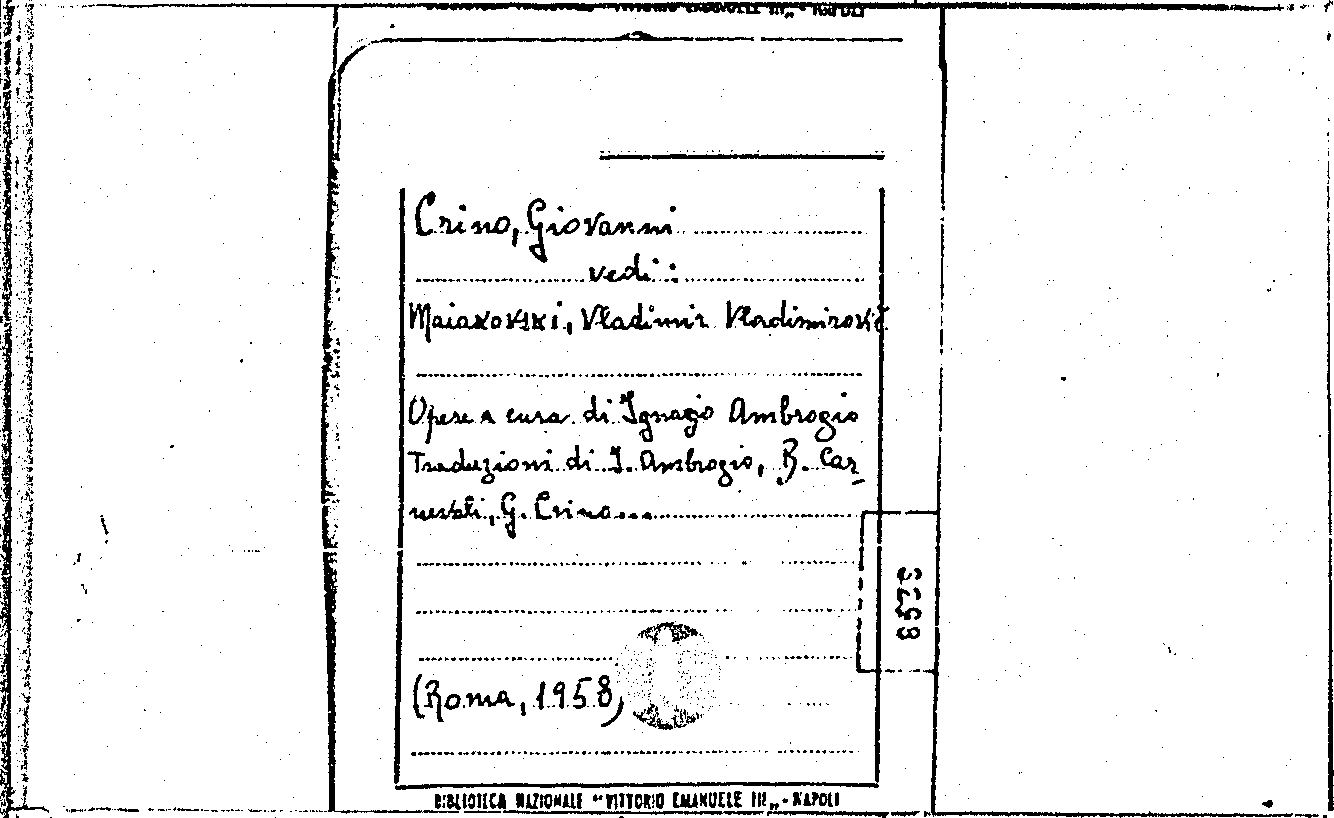 VITTORIO EMANUELE III„ - NAPOLI
Crino, Giovanni
vedi:
Maiakovski, Vladimir Vladimirovič
Opere a cura di Ignazio Ambrogio
Traduzioni di I. Ambrogio, B. Car
nevali, G. Crino...
(Roma, 1958)
BIBLIOTECA NAZIONALE "VITTORIO EMANUELE III„ - NAPOLI